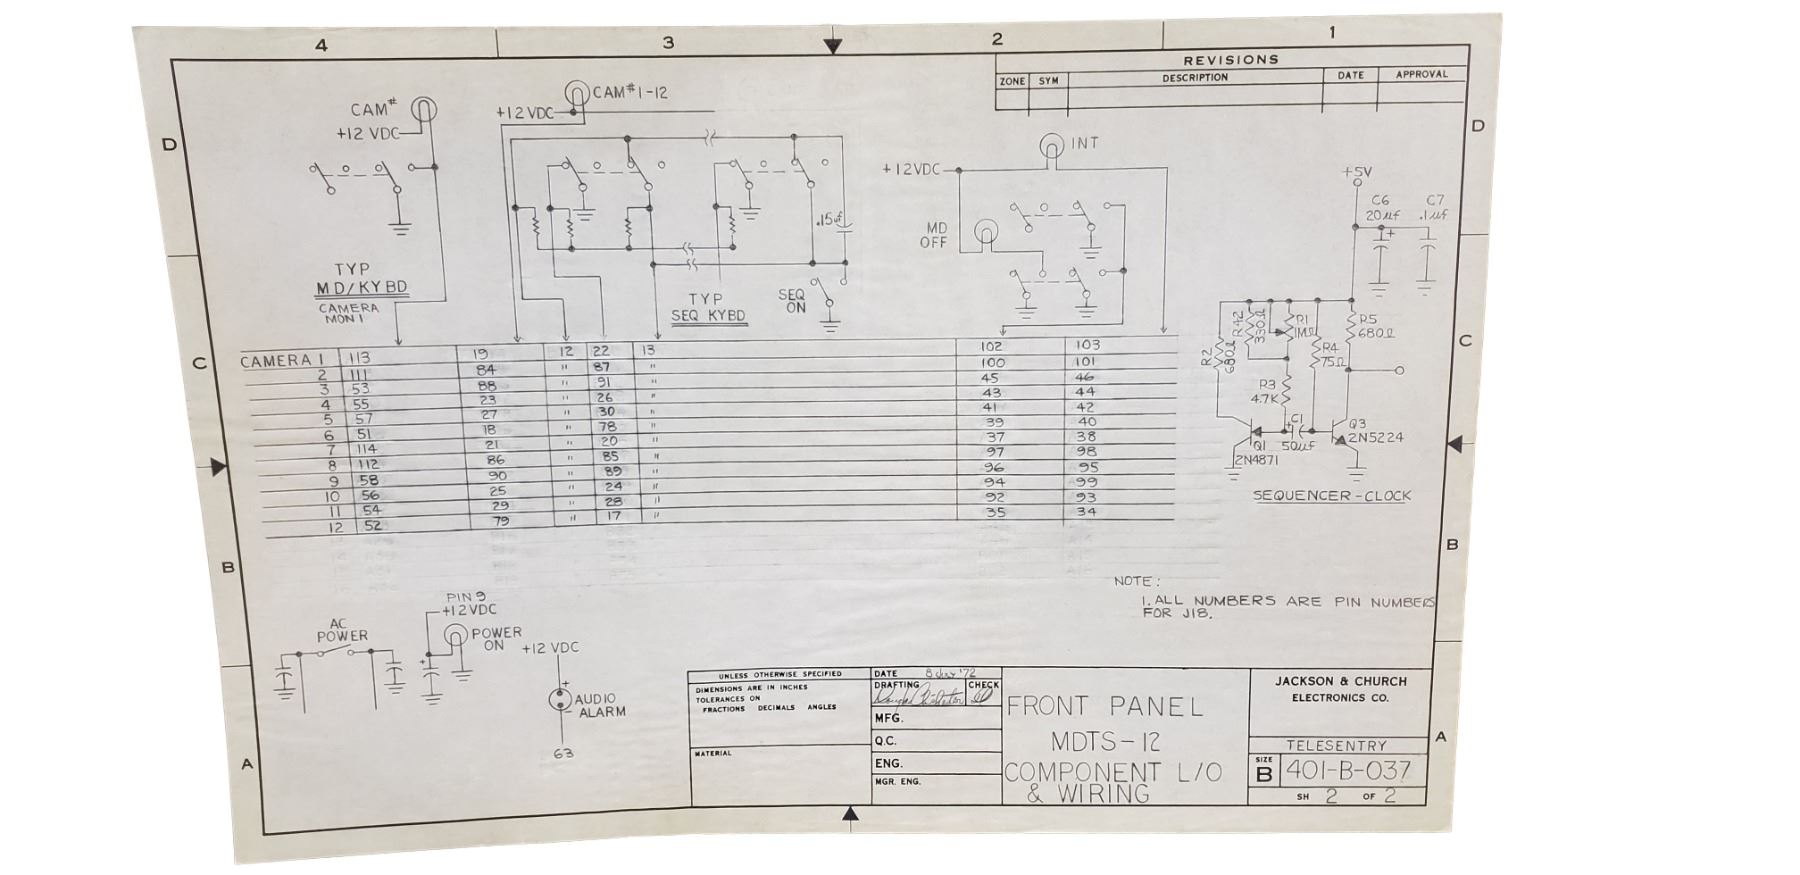 4 3 2 1
REVISIONS
ZONE SYM DESCRIPTION DATE APPROVAL
D D
CAM#
+12 VDC
CAM#1-12
+12VDC
INT
+12VDC
MD
OFF
+5V
C6
20µf
C7
.1µf
+
.15uf
TYP
MD/KYBD
CAMERA
MON 1
TYP
SEQ KYBD
SEQ
ON
R2
680Ω
R42
330Ω
R1
1MΩ
R5
680Ω
R4
75Ω
R3
4.7K
C1
+
50µf
Q1
2N4871
Q3
2N5224
SEQUENCER-CLOCK
C C
CAMERA 1 113 19 12 22 13 102 103
2 111 84 " 87 " 100 101
3 53 88 " 91 " 45 46
4 55 23 " 26 " 43 44
5 57 27 " 30 " 41 42
6 51 18 " 78 " 39 40
7 114 21 " 20 " 37 38
8 112 86 " 85 " 97 98
9 58 90 " 89 " 96 95
10 56 25 " 24 " 94 99
11 54 29 " 28 " 92 93
12 52 79 " 17 " 35 34
B B
NOTE:
1. ALL NUMBERS ARE PIN NUMBERS
FOR J18.
AC
POWER
PIN 9
+12VDC
POWER
ON
+
+12 VDC
+
AUDIO
-
ALARM
63
A A
UNLESS OTHERWISE SPECIFIED
DIMENSIONS ARE IN INCHES
TOLERANCES ON
FRACTIONS DECIMALS ANGLES
MATERIAL
DATE 8 '72
DRAFTING CHECK
MFG.
Q.C.
ENG.
MGR. ENG.
FRONT PANEL
MDTS-12
COMPONENT L/O
& WIRING
JACKSON & CHURCH
ELECTRONICS CO.
TELESENTRY
SIZE
B 401-B-037
SH 2 OF 2